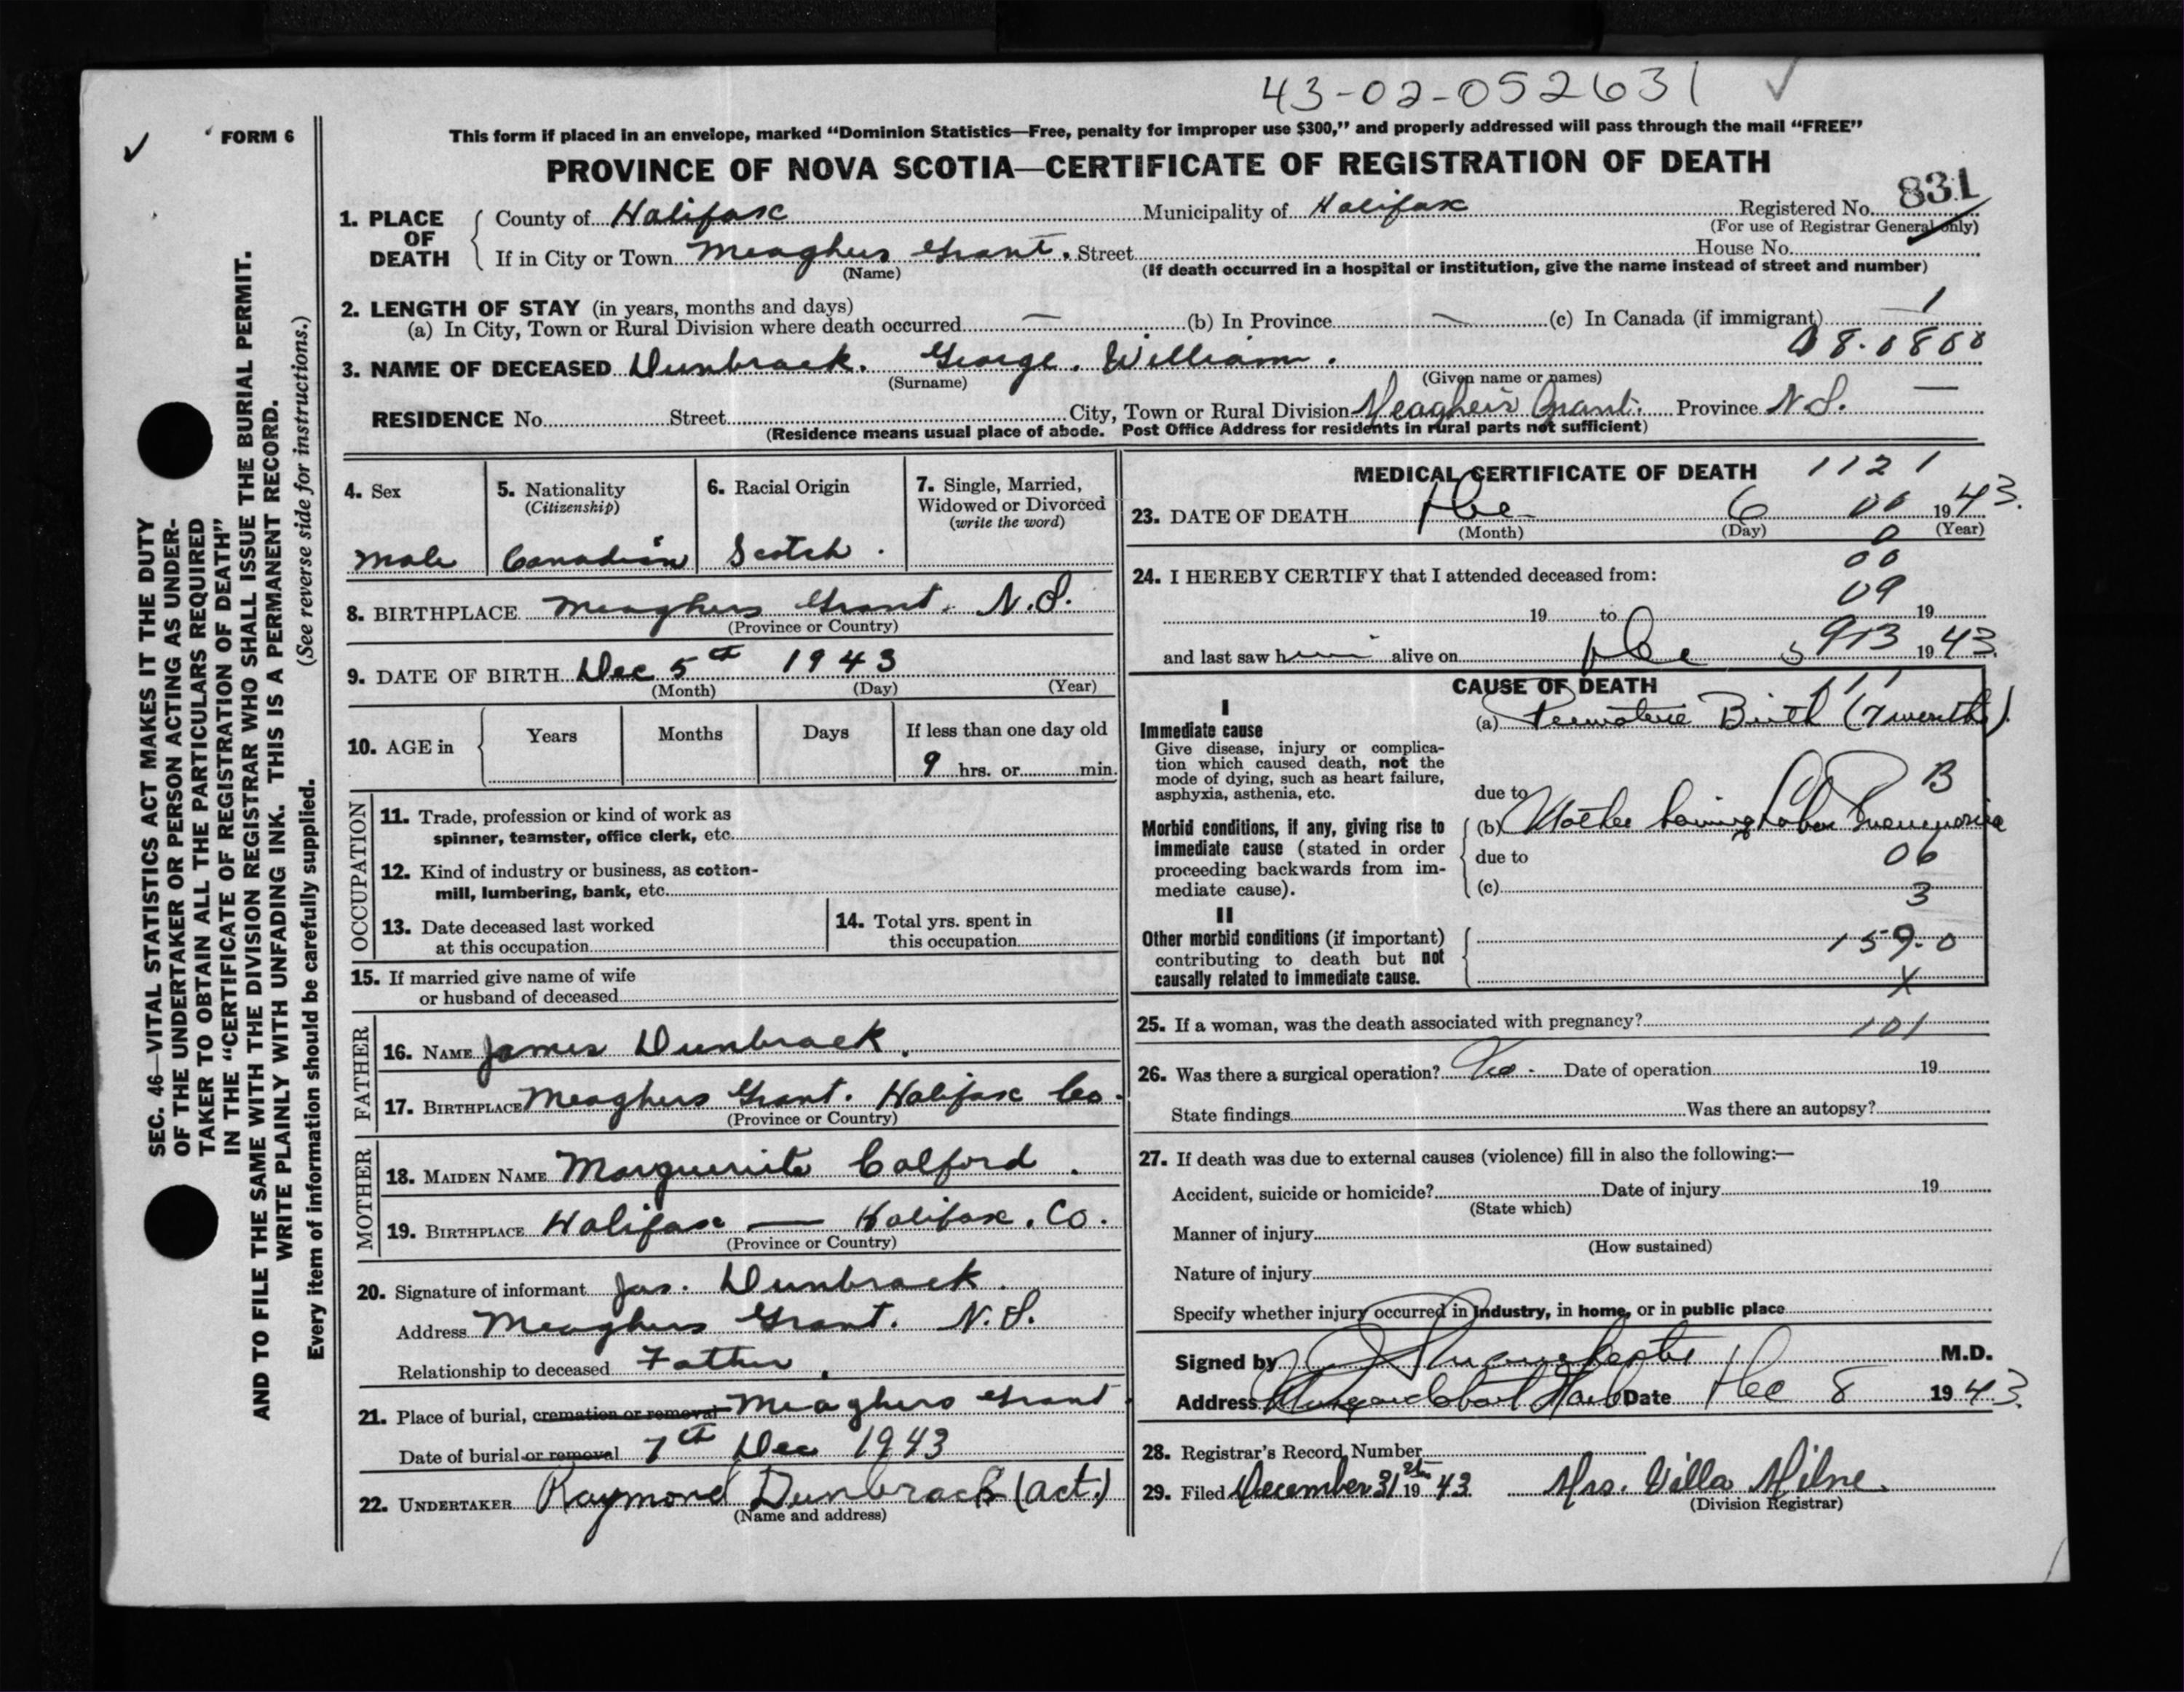 43-02-052631 ✓
✓ FORM 6
This form if placed in an envelope, marked “Dominion Statistics—Free, penalty for improper use $300,” and properly addressed will pass through the mail “FREE”
PROVINCE OF NOVA SCOTIA—CERTIFICATE OF REGISTRATION OF DEATH
831
1. PLACE OF DEATH County of Halifax Municipality of Halifax Registered No.
(For use of Registrar General only)
If in City or Town Meaghers Grant. Street House No.
(Name) (If death occurred in a hospital or institution, give the name instead of street and number)
2. LENGTH OF STAY (in years, months and days) 1
(a) In City, Town or Rural Division where death occurred — (b) In Province — (c) In Canada (if immigrant) —
08.0800
3. NAME OF DECEASED Dunbrack. George. William.
(Surname) (Given name or names)
RESIDENCE No. Street City, Town or Rural Division Meagher's Grant. Province N.S. —
(Residence means usual place of abode. Post Office Address for residents in rural parts not sufficient)
SEC. 46—VITAL STATISTICS ACT MAKES IT THE DUTY
OF THE UNDERTAKER OR PERSON ACTING AS UNDER-
TAKER TO OBTAIN ALL THE PARTICULARS REQUIRED
IN THE “CERTIFICATE OF REGISTRATION OF DEATH”
AND TO FILE THE SAME WITH THE DIVISION REGISTRAR WHO SHALL ISSUE THE BURIAL PERMIT.
WRITE PLAINLY WITH UNFADING INK. THIS IS A PERMANENT RECORD.
Every item of information should be carefully supplied. (See reverse side for instructions.)
4. Sex
Male
5. Nationality
(Citizenship)
Canadian
6. Racial Origin
Scotch.
7. Single, Married,
Widowed or Divorced
(write the word)
8. BIRTHPLACE Meaghers Grant. N.S.
(Province or Country)
9. DATE OF BIRTH Dec 5th 1943
(Month) (Day) (Year)
10. AGE in Years Months Days If less than one day old
9 hrs. or min.
OCCUPATION
11. Trade, profession or kind of work as
spinner, teamster, office clerk, etc.
12. Kind of industry or business, as cotton-
mill, lumbering, bank, etc.
13. Date deceased last worked
at this occupation
14. Total yrs. spent in
this occupation
15. If married give name of wife
or husband of deceased
FATHER
16. NAME James Dunbrack.
17. BIRTHPLACE Meaghers Grant. Halifax Co.
(Province or Country)
MOTHER
18. MAIDEN NAME Marguerite Calford.
19. BIRTHPLACE Halifax — Halifax. Co.
(Province or Country)
20. Signature of informant Jas. Dunbrack.
Address Meaghers Grant. N.S.
Relationship to deceased Father.
21. Place of burial, cremation or removal Meaghers Grant
Date of burial or removal 7th Dec 1943
22. UNDERTAKER Raymond Dunbrack (act.)
(Name and address)
MEDICAL CERTIFICATE OF DEATH 1121
23. DATE OF DEATH Dec 6 00 1943.
(Month) (Day) (Year)
0
00
24. I HEREBY CERTIFY that I attended deceased from:
09
19 to 19
and last saw him alive on Dec 5 913 1943.
CAUSE OF DEATH 111
I
Immediate cause
Give disease, injury or complica-
tion which caused death, not the
mode of dying, such as heart failure,
asphyxia, asthenia, etc.
(a) Premature Birth (7 months).
B
due to
Morbid conditions, if any, giving rise to
immediate cause (stated in order
proceeding backwards from im-
mediate cause).
(b) Mother having Lobar Pneumonia
due to 06
(c)
3
II
Other morbid conditions (if important)
contributing to death but not
causally related to immediate cause.
159.0
X
25. If a woman, was the death associated with pregnancy? 101
26. Was there a surgical operation? No. Date of operation 19
State findings Was there an autopsy?
27. If death was due to external causes (violence) fill in also the following:—
Accident, suicide or homicide? Date of injury 19
(State which)
Manner of injury
(How sustained)
Nature of injury
Specify whether injury occurred in industry, in home, or in public place
Signed by M.D.
Address Musquodoboit Harb Date Dec 8 1943.
28. Registrar's Record Number
29. Filed December 31st 1943. Mrs. Villa Milne.
(Division Registrar)